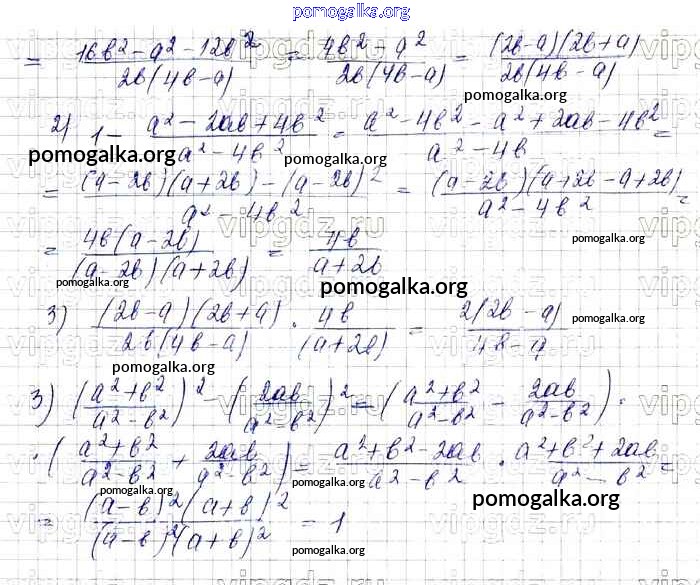 pomogalka.org
= (16b² - a² - 12b²)/(2b(4b-a)) = (4b² - a²)/(2b(4b-a)) = ((2b-a)(2b+a))/(2b(4b-a))
pomogalka.org
2) 1 - (a² - 2ab + 4b²)/(a² - 4b²) = (a² - 4b² - a² + 2ab - 4b²)/(a² - 4b) =
pomogalka.org pomogalka.org
= ((a-2b)(a+2b) - (a-2b)²)/(a² - 4b²) = ((a-2b)(a+2b-a+2b))/(a² - 4b²) =
pomogalka.org
= (4b(a-2b))/((a-2b)(a+2b)) = 4b/(a+2b)
pomogalka.org pomogalka.org
3) ((2b-a)(2b+a))/(2b(4b-a)) · 4b/(a+2b) = (2(2b-a))/(4b-a)
pomogalka.org pomogalka.org
3) ((a²+b²)/(a²-b²))² - (2ab/(a²-b²))² = ((a²+b²)/(a²-b²) - 2ab/(a²-b²)) ·
pomogalka.org pomogalka.org
· ((a²+b²)/(a²-b²) + 2ab/(a²-b²)) = (a²+b²-2ab)/(a²-b²) · (a²+b²+2ab)/(a²-b²) =
pomogalka.org pomogalka.org pomogalka.org
= ((a-b)²(a+b)²)/((a-b)²(a+b)²) = 1
pomogalka.org